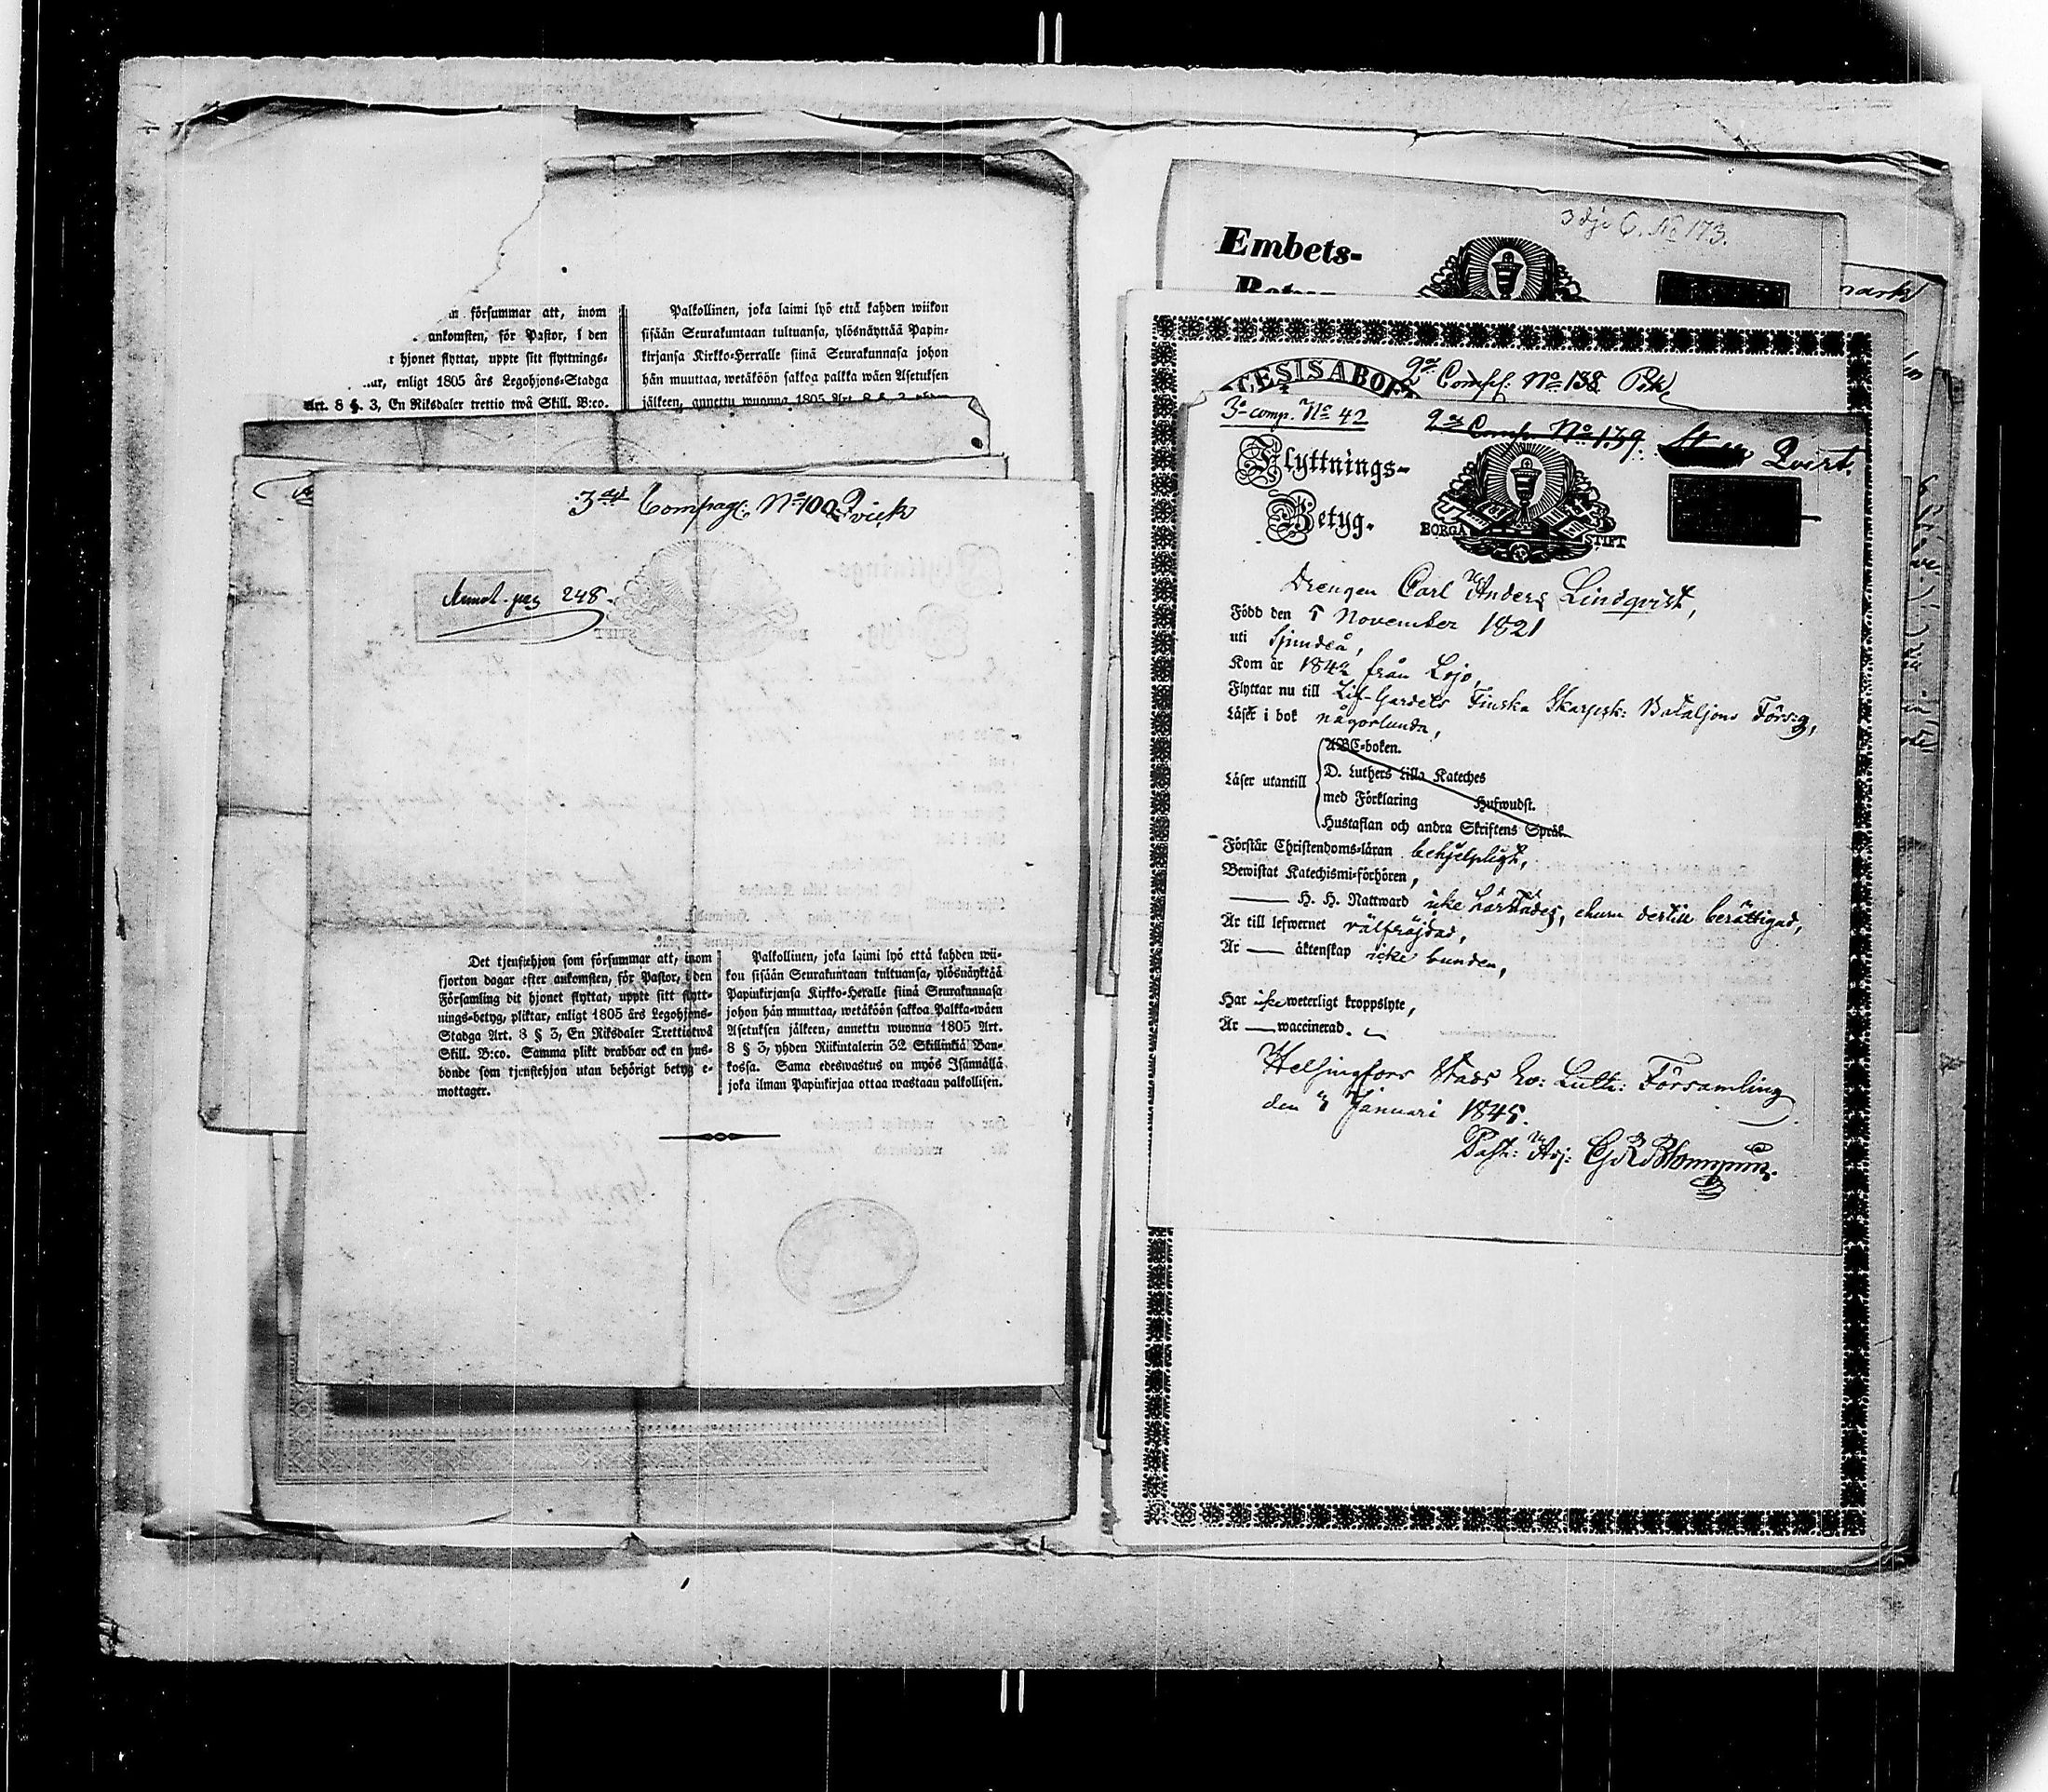 m försummar att, inom
ankomsten, för Pastor, i den
t hjonet flyttat, uppte sitt flyttnings-
enligt 1805 års Legohjons-Stadga
Art. 8 §. 3, En Riksdaler trettio twå Skill. B:co.
Palkollinen, joka laimi lyö että kahden wiikon
sisään Seurakuntaan tultuansa, ylösnäyttää Papin-
kirjansa Kirkko-Herralle siinä Seurakunnasa johon
hän muuttaa, wetäköön sakkoa palkka wäen Asetuksen
jälkeen, annettu wuonna 1805 Art. 8 § 3, yhden
Compag: No 100 Qvick
248
Det tjenstehjon som försummar att, inom
fjorton dagar efter ankomsten, för Pastor, i den
Församling dit hjonet flyttat, uppte sitt flytt-
nings-betyg, pliktar, enligt 1805 års Legohjons-
Stadga Art. 8 § 3, En Riksdaler Trettiotwå
Skill. B:co. Samma plikt drabbar ock en hus-
bonde som tjenstehjon utan behörigt betyg e-
mottager.
Palkollinen, joka laimi lyö että kahden wii-
kon sisään Seurakuntaan tultuansa, ylösnäyttää
Papinkirjansa Kirkko-Heralle siinä Seurakunnasa
johon hän muuttaa, wetäköön sakkoa Palkka-wäen
Asetuksen jälkeen, annettu wuonna 1805 Art.
8 § 3, yhden Riikintalerin 32 Skillinkiä Ban-
kossa. Sama edeswastus on myös Isännällä
joka ilman Papinkirjaa ottaa wastaan palkollisen.
3dje C. No 173.
Embets-
Betyg
Comp: No 138
3e comp. No 42
Comp No 139. Qvist.
Flyttnings-
Betyg.
BORGÅ STIFT
Drengen Carl Anders Lindqvist,
Född den 5 November 1821
uti Sjundeå,
Kom år 1842 från Lojo,
Flyttar nu till Lif-Gardets Finska Skarpsk: Bataljons Förs:g,
Läser i bok någorlunda,
Läser utantill
ABC-boken.
D. Luthers Lilla Kateches
med Förklaring Hufwudst.
Hustaflan och andra Skriftens Språk.
Förstår Christendoms-läran behjelpligt,
Bewistat Katechismi-förhören,
H. H. Nattward icke härstädes, ehuru dertill berättigad,
Är till lefwernet välfräjdad,
Är — äktenskap icke bunden,
Har icke weterligt kroppslyte,
Är — waccinerad.
Helsingfors Stads Ev: Luth: Församling
den 3 Januari 1845.
Past: Adj: